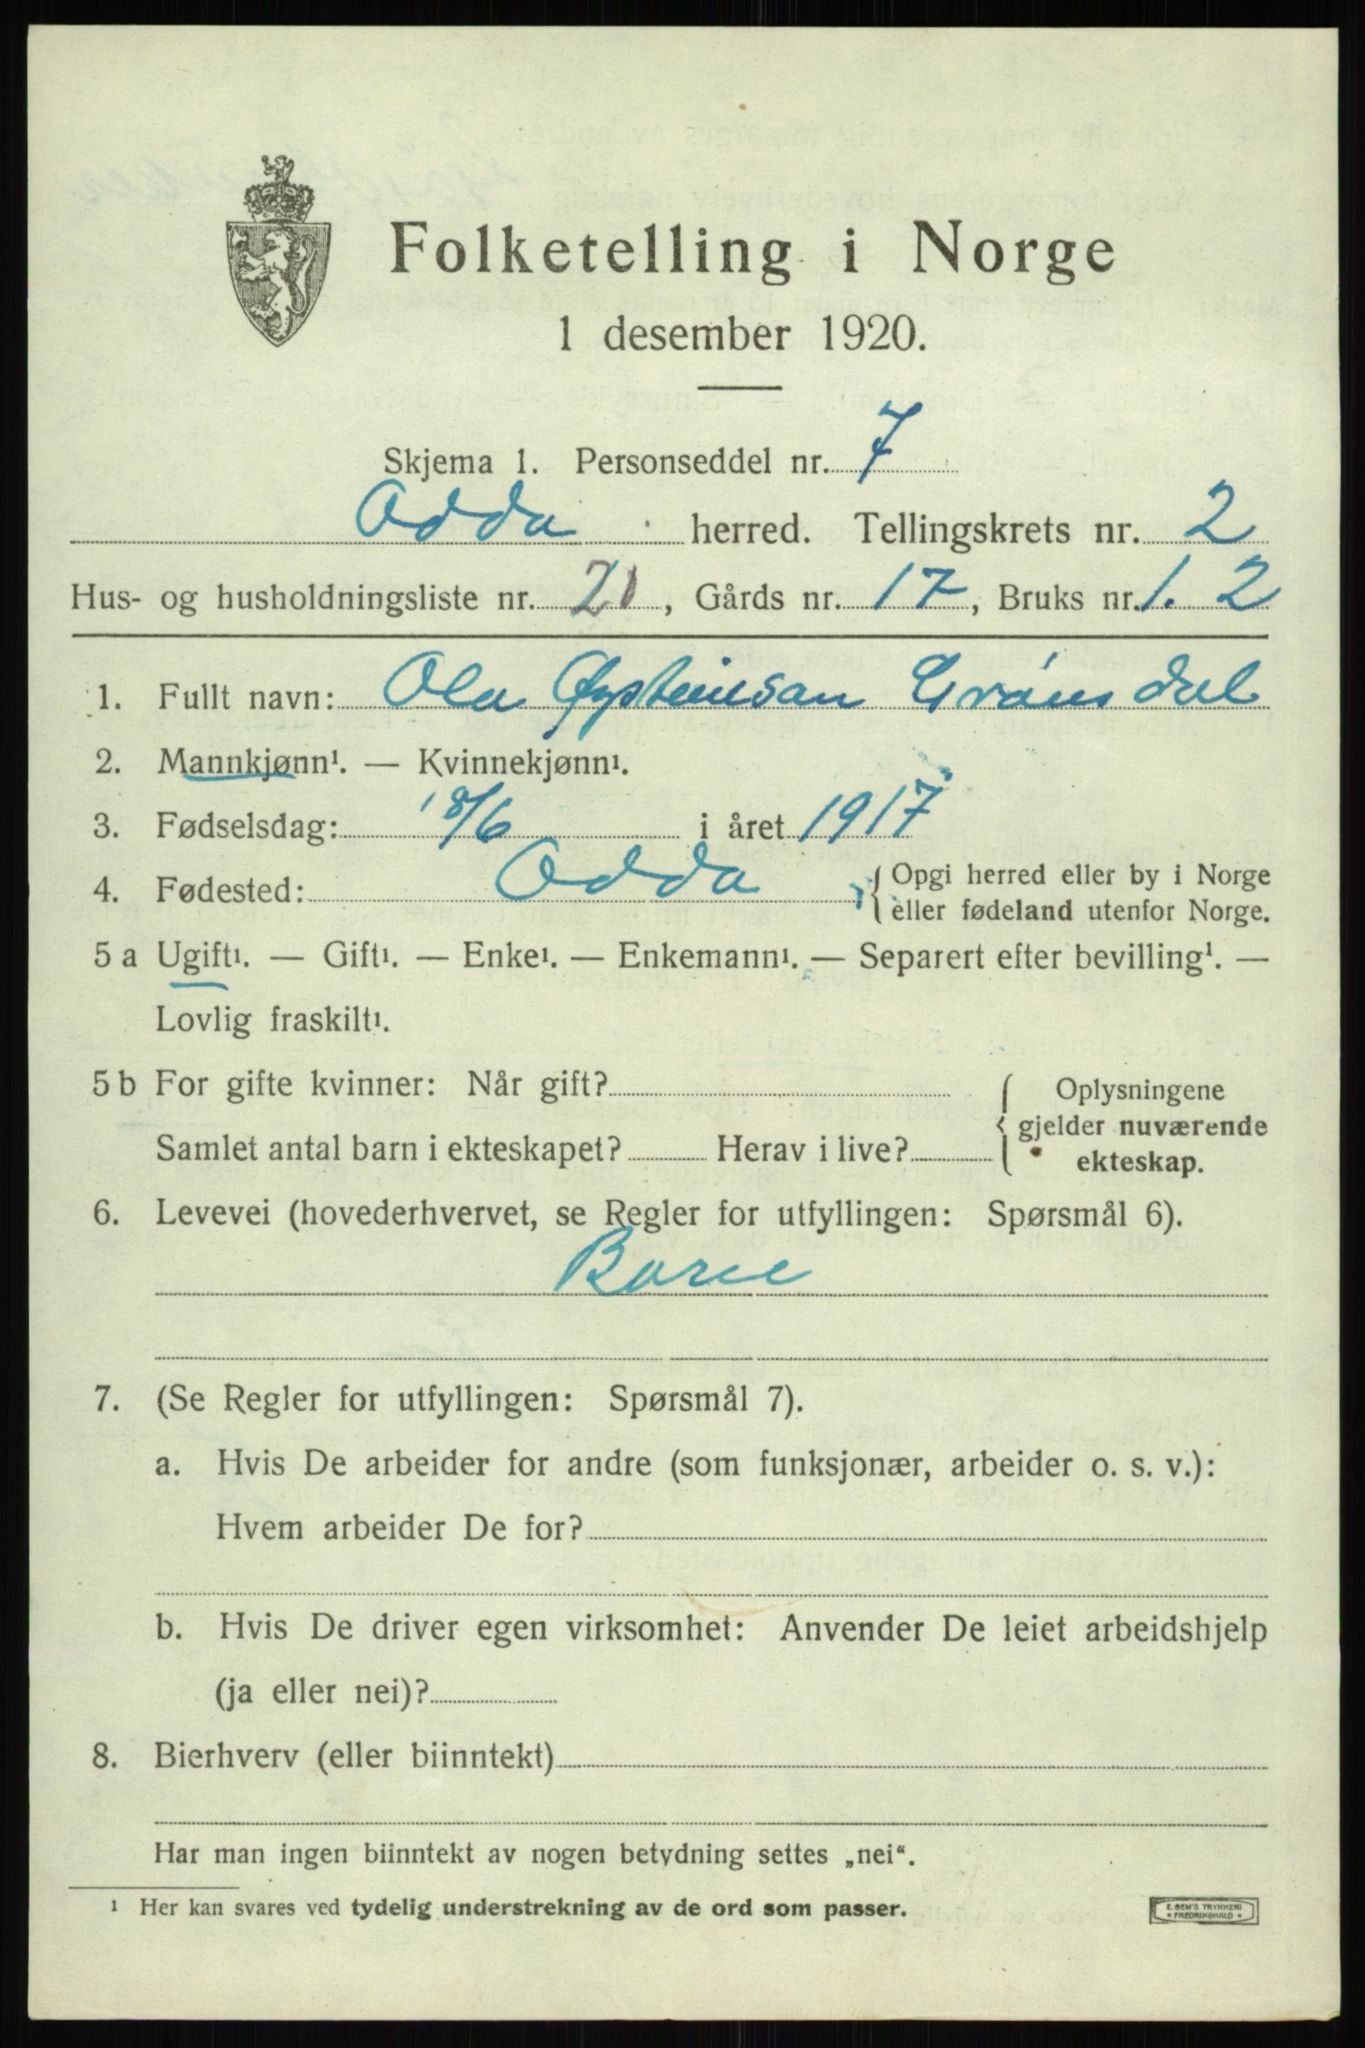 Folketelling i Norge
1 desember 1920.
Skjema 1. Personseddel nr. 7
Odda herred. Tellingskrets nr. 2
Hus- og husholdningsliste nr. 21, Gårds nr. 17, Bruks nr. 1. 2
1. Fullt navn: Ola Øysteinsan Grønsdal
2. Mannkjønn¹. — Kvinnekjønn¹.
3. Fødselsdag: 18/6 i året 1917
4. Fødested: Odda { Opgi herred eller by i Norge
eller fødeland utenfor Norge.
5 a Ugift¹. — Gift¹. — Enke¹. — Enkemann¹. — Separert efter bevilling¹. —
Lovlig fraskilt¹.
5 b For gifte kvinner: Når gift? { Oplysningene
gjelder nuværende
Samlet antal barn i ekteskapet? Herav i live? ekteskap.
6. Levevei (hovederhvervet, se Regler for utfyllingen: Spørsmål 6).
Barn
7. (Se Regler for utfyllingen: Spørsmål 7).
a. Hvis De arbeider for andre (som funksjonær, arbeider o. s. v.):
Hvem arbeider De for?
b. Hvis De driver egen virksomhet: Anvender De leiet arbeidshjelp
(ja eller nei)?
8. Bierhverv (eller biinntekt)
Har man ingen biinntekt av nogen betydning settes „nei“.
¹ Her kan svares ved tydelig understrekning av de ord som passer.
E. SEM'S TRYKKERI
* FREDRIKSHALD *